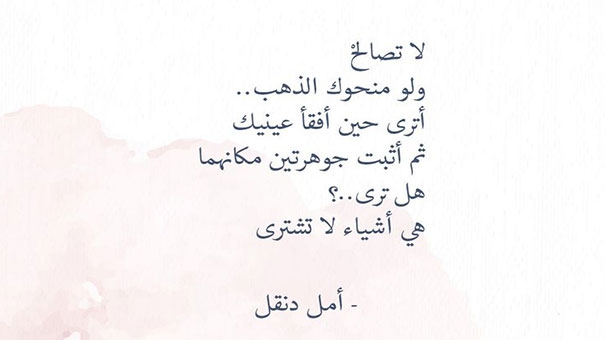 لا تصالحْ
ولو منحوك الذهب..
أترى حين أفقأ عينيك
ثم أثبت جوهرتين مكانهما
هل ترى..؟
هي أشياء لا تشترى
- أمل دنقل